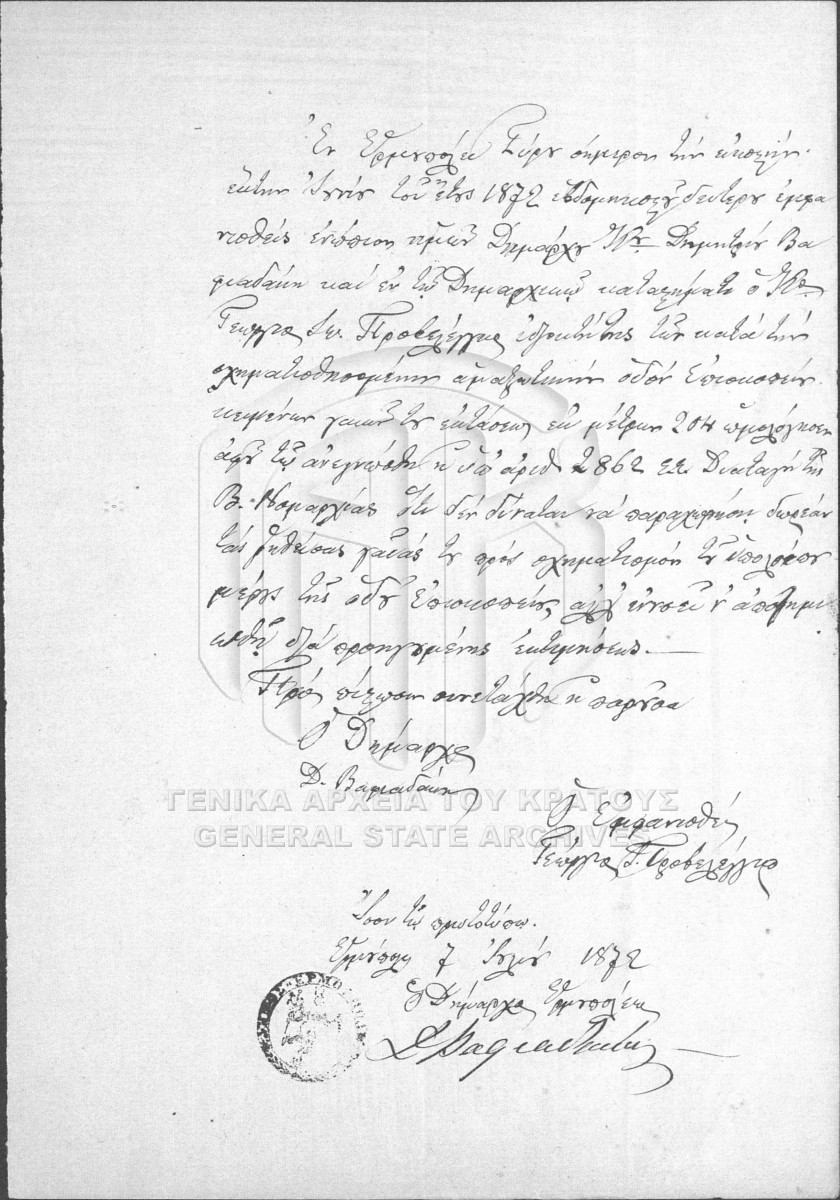 Ἐν Ἑρμουπόλει Σύρου σήμερον τὴν εἰκοστὴν
ἕκτην Ἰουνίου τοῦ ἔτους 1872 ἑβδομηκοστοῦ δευτέρου ἐμφα
νισθεὶς ἐνώπιον ἡμῶν Δημάρχου Κου Δημητρίου Βα
φιαδάκη καὶ ἐν τῷ Δημαρχικῷ καταστήματι ὁ Κος
Γεώργιος Προβελέγγιος ἰδιοκτήτης τῶν κατὰ τὴν
σχηματισθησομένην ἁμαξωτικὴν ὁδὸν Ἐπισκοπείου
κειμένων γαιῶν του ἐκτάσεως ἐκ μέτρων 204 ὡμολόγησεν
ἀφοῦ τῷ ἀνεγνώσθη ἡ ὑπ' ἀριθ 2862 Διαταγὴ τῆς
Β. Νομαρχίας ὅτι δὲν δύναται νὰ παραχωρήσῃ δωρεὰν
τὰς ῥηθείσας γαίας του πρὸς σχηματισμὸν τοῦ ὑπολοίπου
μέρους τῆς ὁδοῦ Ἐπισκοπείου, ἀλλ' ἐννοεῖ ν' ἀποζημι
ωθῇ διὰ προηγουμένης ἐκτιμήσεως.
Πρὸς πίστωσιν συνετάχθη ἡ παροῦσα
Ὁ Δήμαρχος
Δ. Βαφιαδάκης
Ὁ Ἐμφανισθεὶς
Γεώργιος Γ. Προβελέγγιος
Ἴσον τῷ πρωτοτύπῳ.
Ἑρμούπολη 7 Ἰουλίου 1872
Ὁ Δήμαρχος Ἑρμουπόλεως
Δ Βαφιαδάκης
ΓΕΝΙΚΑ ΑΡΧΕΙΑ ΤΟΥ ΚΡΑΤΟΥΣ
GENERAL STATE ARCHIVES